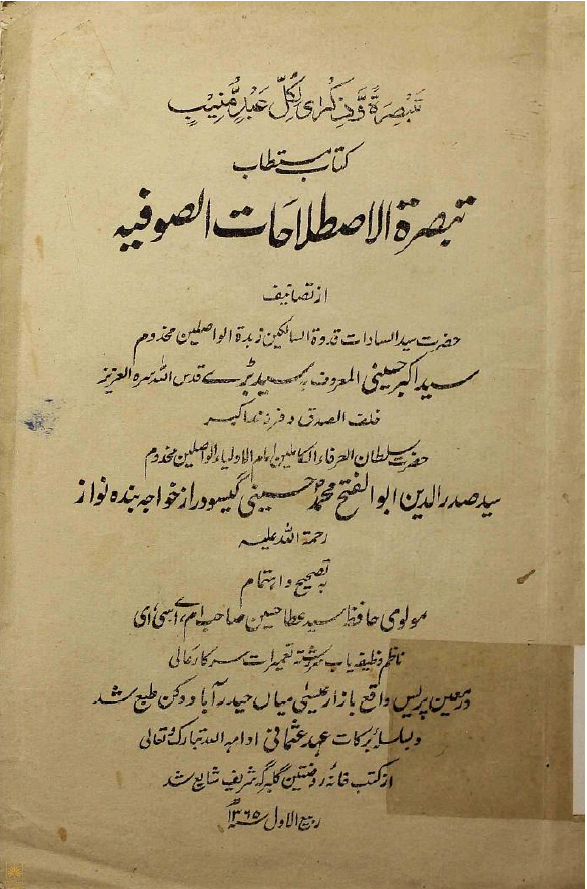 تَبْصِرَةً وَّذِكْرَىٰ لِكُلِّ عَبْدٍ مُّنِيْبٍ
کتاب مستطاب
تبصرة الاصطلاحات الصوفیه
از تصانیف
حضرت سید السادات قدوة السالکین زبدة الواصلین مخدوم
سید اکبر حسینی المعروف بہ سید بڑے قدس اللہ سرہ العزیز
خلف الصدق و فرزند اکبر
حضرت سلطان العرفاء الکاملین امام الاولیاء الواصلین مخدوم
سید صدر الدین ابو الفتح محمد حسینی گیسو دراز خواجہ بندہ نواز
رحمۃ اللہ علیہ
بہ تصحیح و اہتمام
مولوی حافظ سید عطا حسین صاحب ام، اے، سی، ای
ناظم وظیفہ یاب سررشتہ تعمیرات سرکار عالی
در معین پریس واقع بازار عیسیٰ میاں حیدرآباد دکن طبع شد
و بسلسلۂ برکات عہد عثمانی ادامہ اللہ تبارک و تعالیٰ
از کتب خانہ روضتین گلبرگہ شریف شایع شد
ربیع الاول ۱۳۶۵ھ